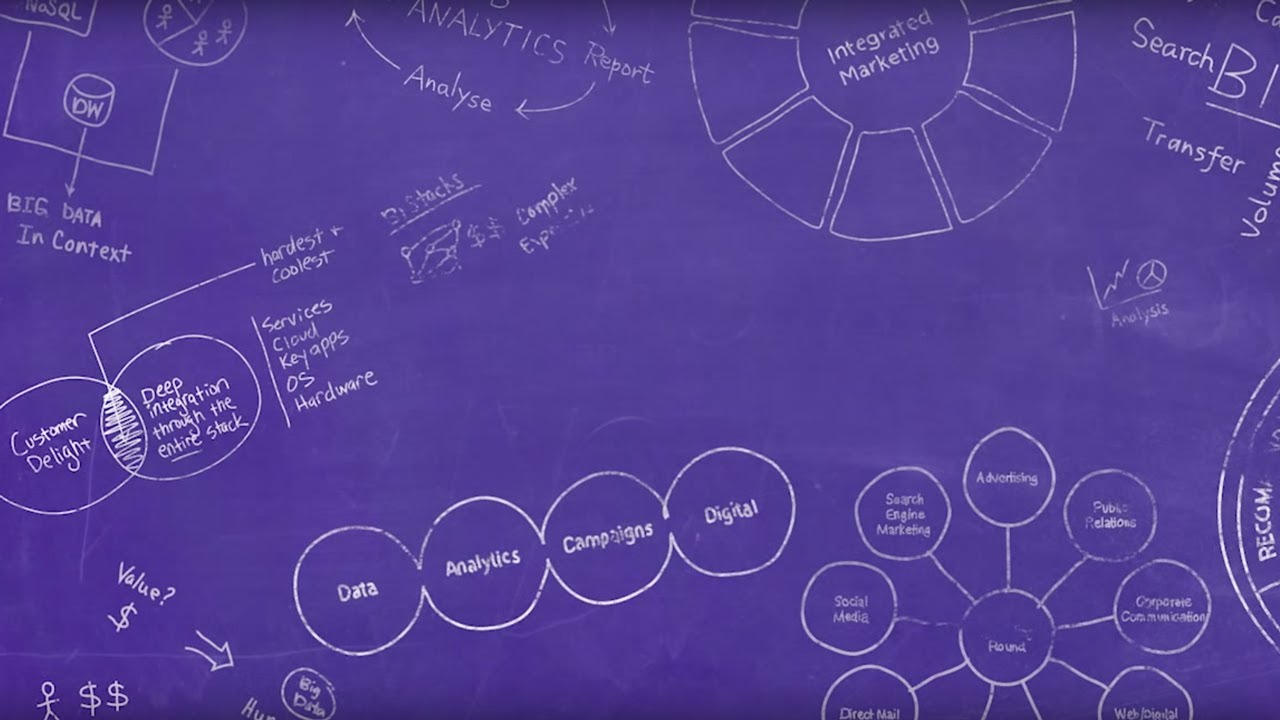 NoSQL
DW
BIG DATA
In Context
ANALYTICS
Report
Analyse
Integrated
Marketing
Search
Transfer
BI Stacks
$$
Complex
hardest +
coolest
Services
Cloud
Key apps
OS
Hardware
Customer
Delight
Deep
integration
through the
entire stack
Analysis
Data
Analytics
Campaigns
Digital
Advertising
Search
Engine
Marketing
Public
Relations
Social
Media
Corporate
Communication
Round
Direct Mail
Web/Digital
Value?
$
$$
Big
Data